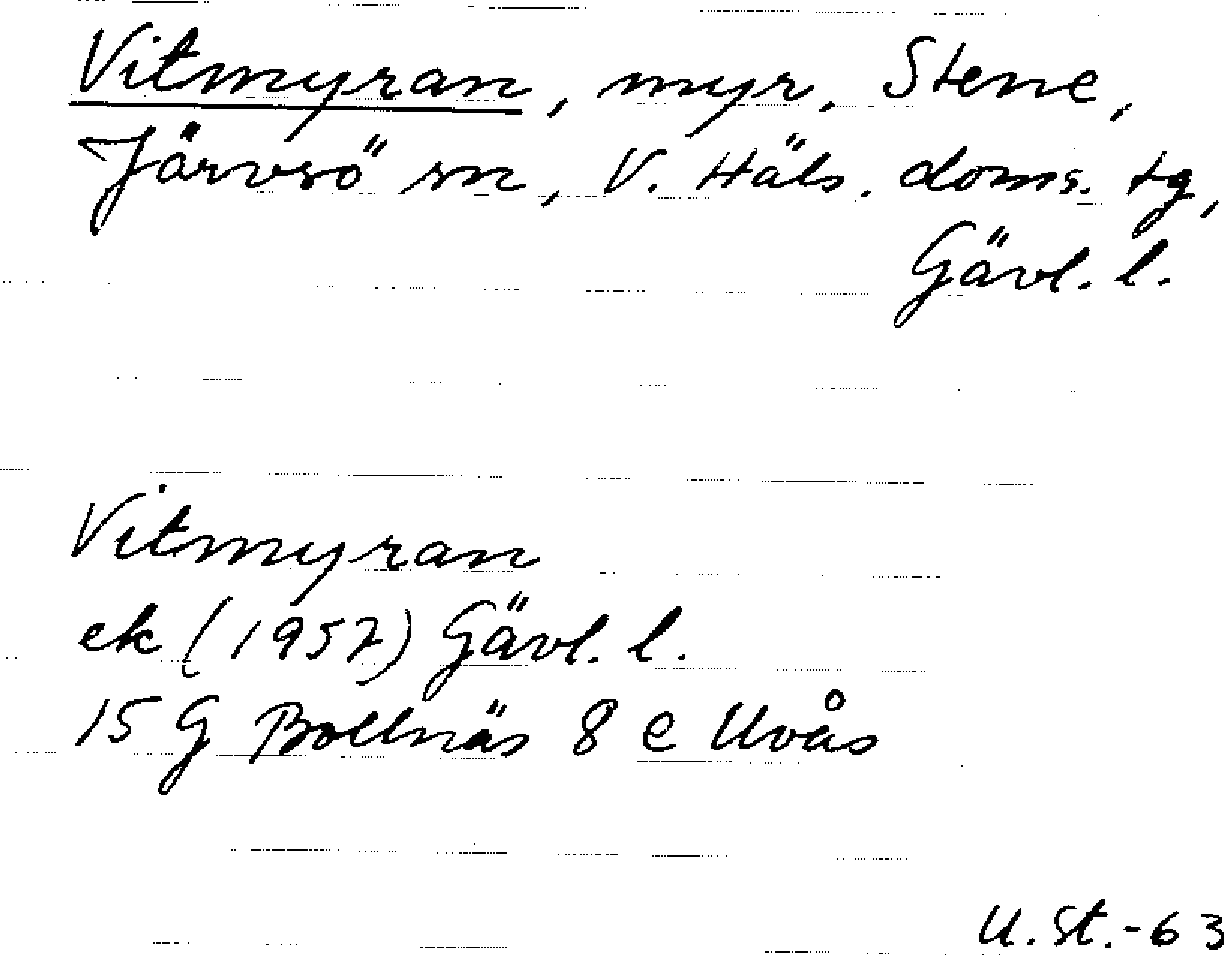 Vitmyran, myr, Stene,
Järvsö sn, V. Häls. doms. tg,
Gävl. l.
Vitmyran
ek (1957) Gävl. l.
15 G Bollnäs 8 e Uvås
U. St.-63